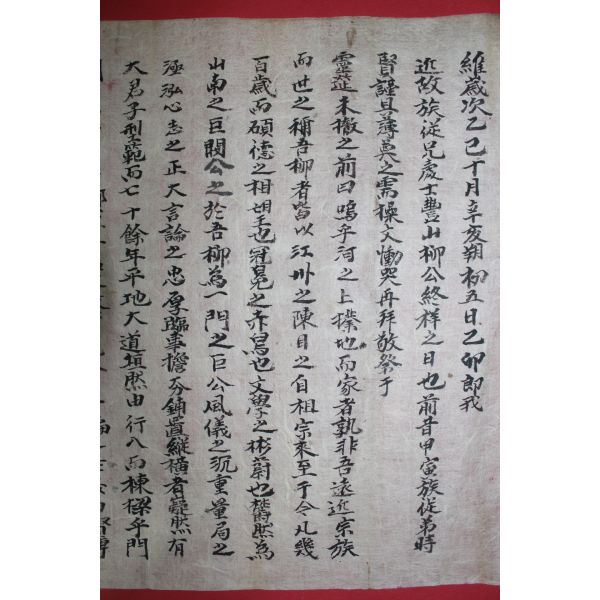 維歲次乙巳十月辛亥朔初五日乙卯卽我
近故族從兄處士豊山柳公終祥之日也前昔甲寅族從弟時
賢謹具薄奠之需操文慟哭再拜敬祭于
靈筵未撤之前曰嗚乎河之上擇地而家者孰非吾遠近宗族
而世之稱吾柳者皆以江州之陳目之自祖宗來至于今凡幾
百歲而碩德之相望也冠冕之赤舃也文學之彬蔚也蔚然爲
山南之巨閥公之於吾柳爲一門之巨公風儀之沉重量局之
泓心志之正大言論之忠厚臨事擔夯鋪置縱橫者靄然有
大君子型範而七十餘年平地大道坦然由行入而棟樑乎門